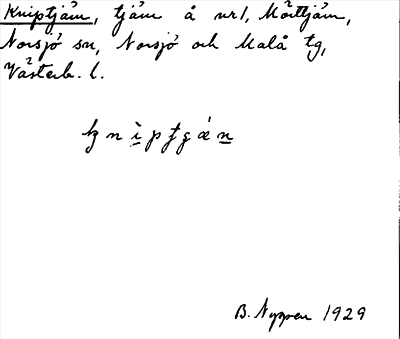 Kniptjärn, tjärn å nr 1, Mörttjärn,
Norsjö sn, Norsjö och Malå tg,
Västerb. l.
B. Nyppen 1929